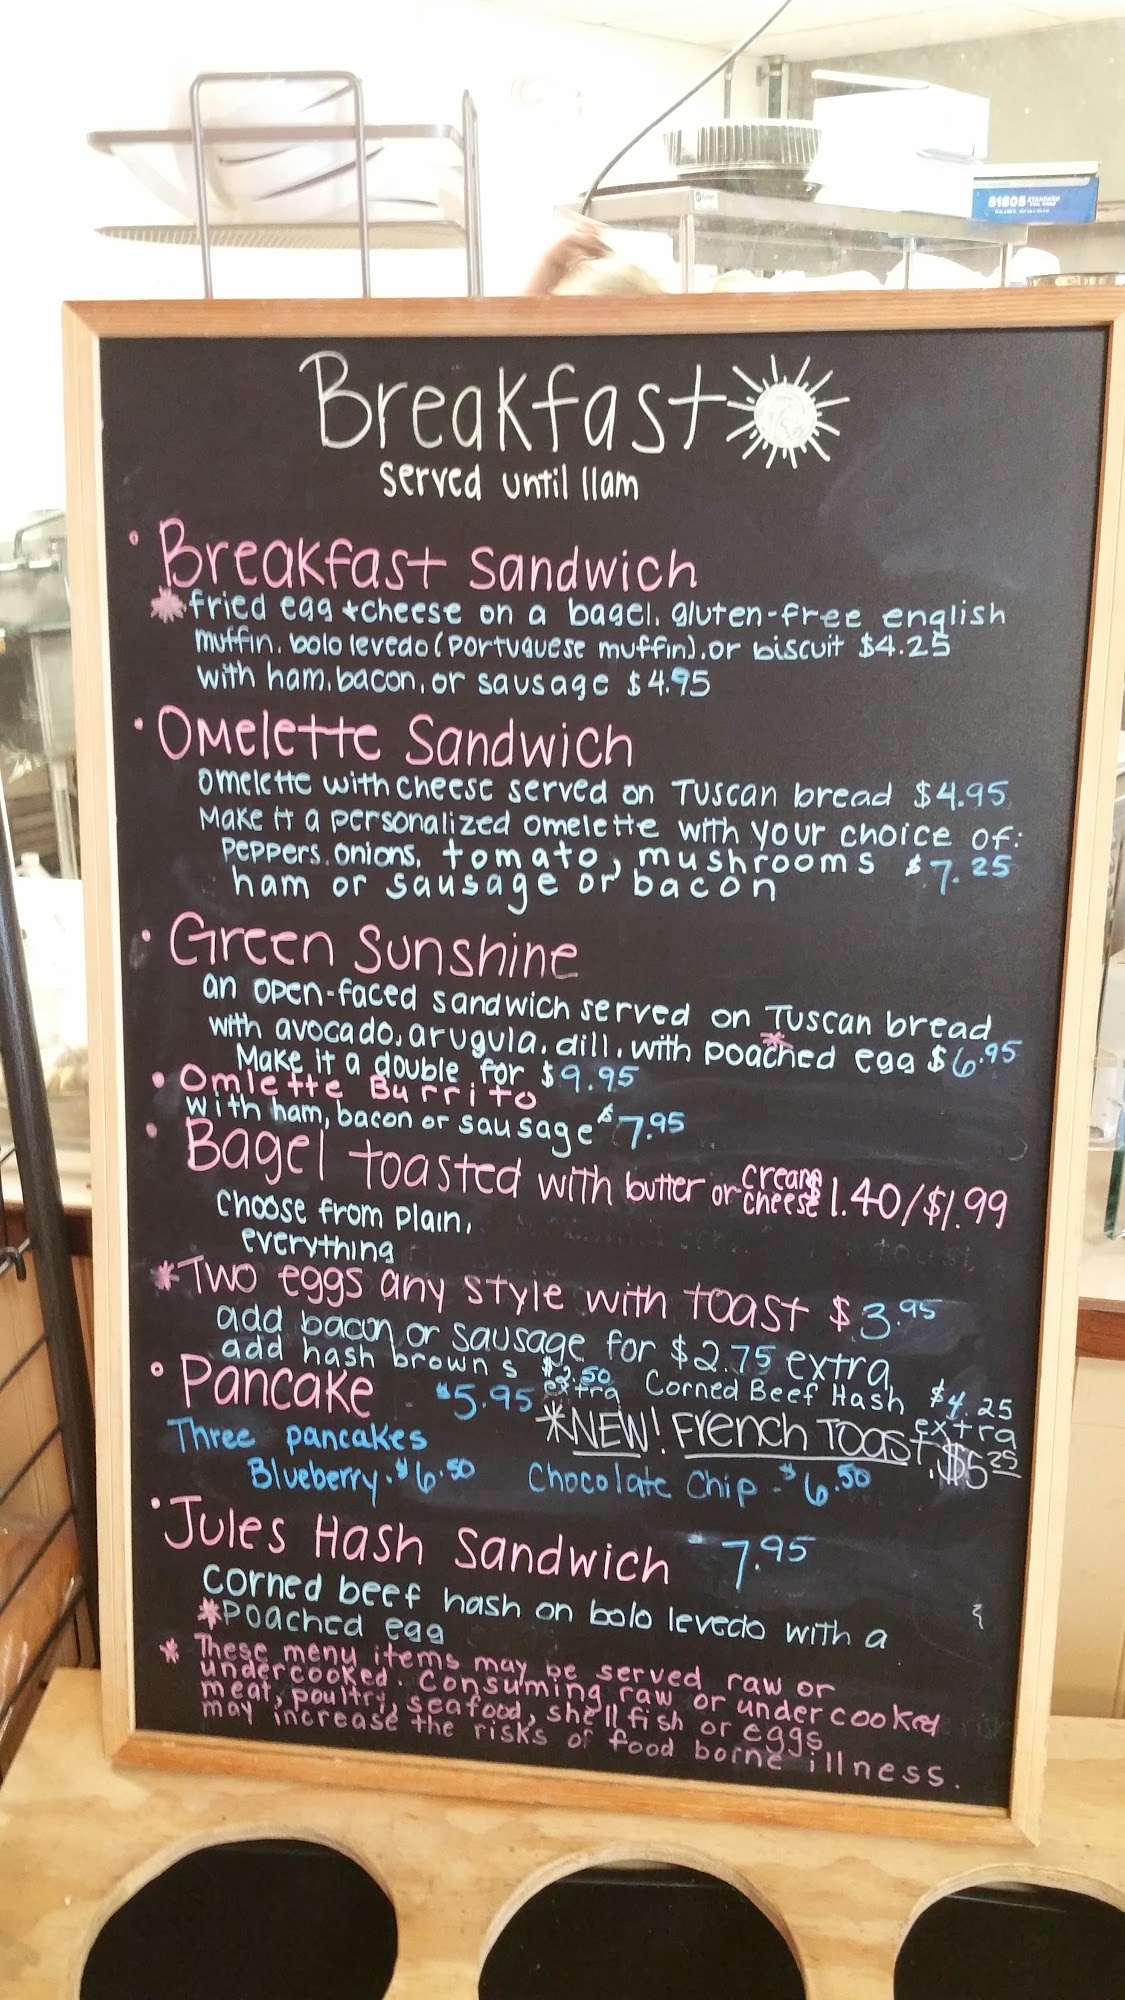 51805 STANDARD
Breakfast
served until 11am
• Breakfast Sandwich
*fried egg + cheese on a bagel, gluten-free english
muffin, bolo levedo (Portuguese muffin), or biscuit $4.25
with ham, bacon, or sausage $4.95
• Omelette Sandwich
omelette with cheese served on Tuscan bread $4.95
Make it a personalized omelette with your choice of:
Peppers, onions, tomato, mushrooms $7.25
ham or sausage or bacon
• Green Sunshine
an open-faced sandwich served on Tuscan bread
with avocado, arugula, dill, with *poached egg $6.95
Make it a double for $9.95
• Omlette Burrito
with ham, bacon or sausage $7.95
• Bagel toasted with butter or cream cheese $1.40/$1.99
Choose from plain,
everything
*Two eggs any style with toast $3.95
add bacon or sausage for $2.75 extra
add hash browns $2.50 extra Corned Beef Hash $4.25 extra
• Pancake $5.95
*NEW! French Toast. $5.25
Three pancakes
Blueberry. $6.50 Chocolate Chip - $6.50
• Jules Hash Sandwich $7.95
corned beef hash on bolo levedo with a
*poached egg
* These menu items may be served raw or
undercooked. Consuming raw or undercooked
meat, poultry, seafood, shellfish or eggs
may increase the risks of food borne illness.